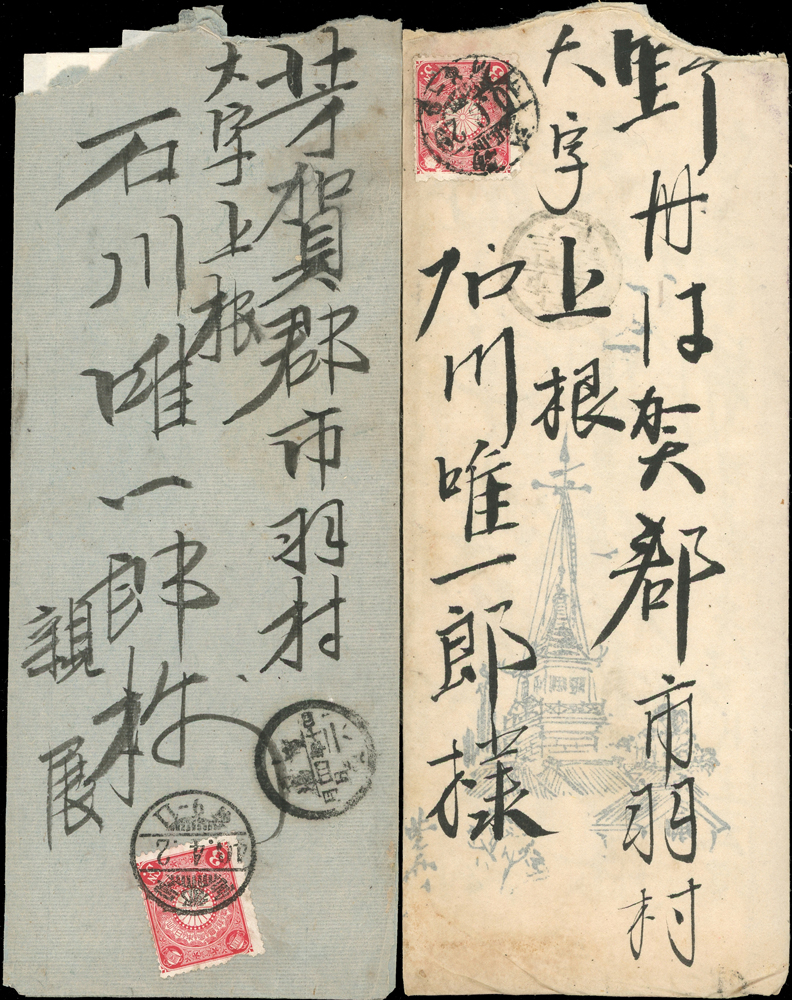 野州は賀郡市羽村
大字上根
石川唯一郎様
芳賀郡市羽村
大字上根
石川唯一郎様
親展